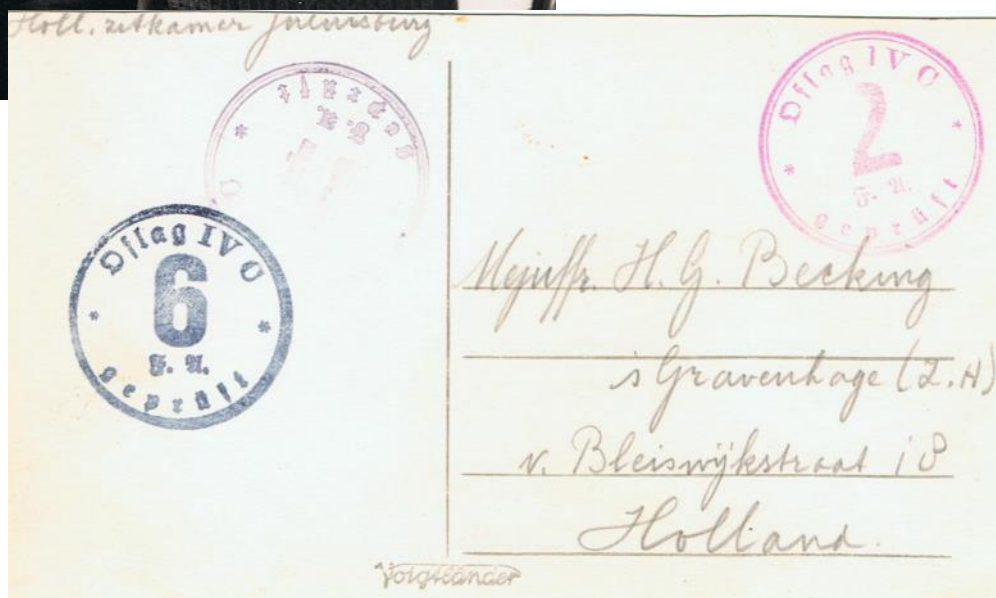 Holl. zitkamer Juliusburg
geprüft
Oflag IV C
2
F. A.
geprüft
Oflag IV C
6
F. A.
geprüft
Mejuffr. H. G. Becking
s Gravenhage (Z.H)
v. Bleiswijkstraat 18
Holland.
Voigtländer